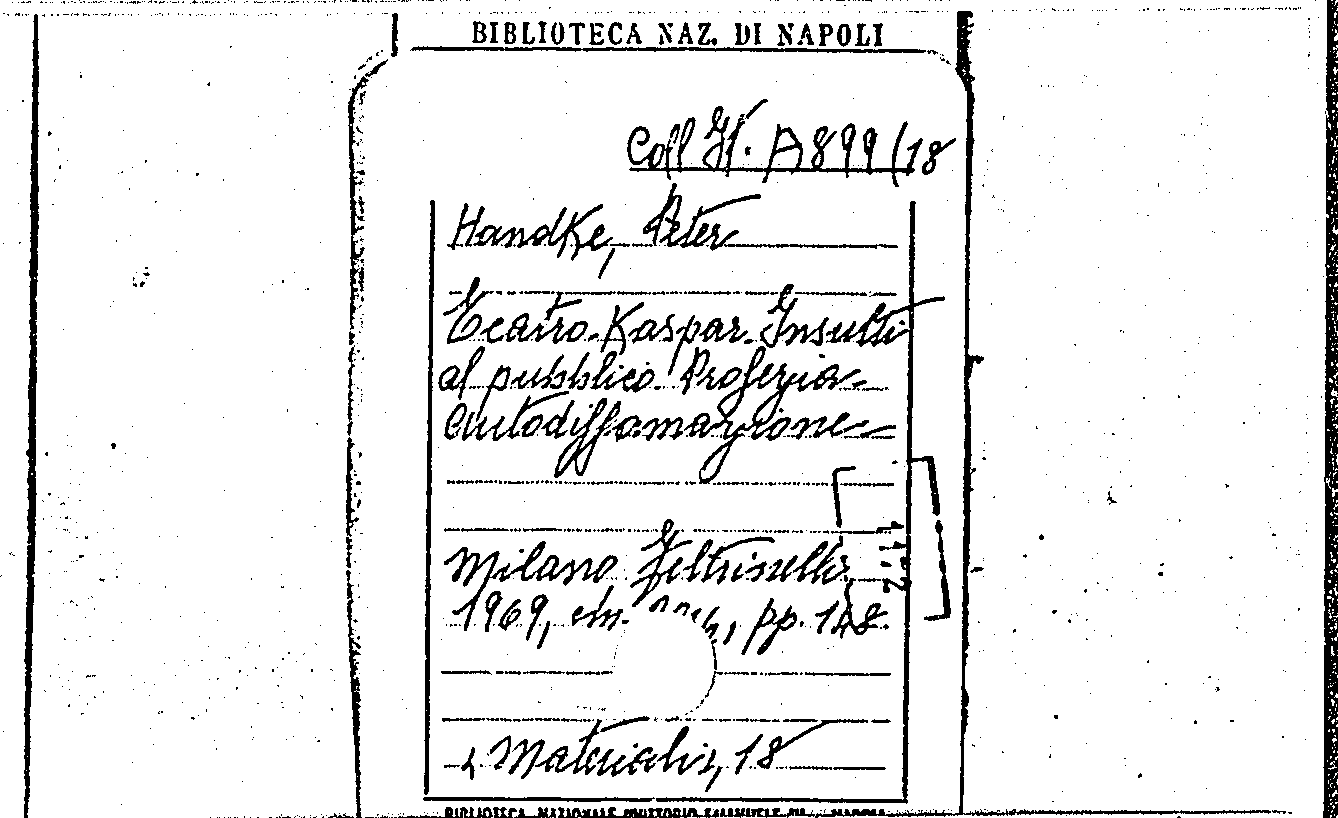 BIBLIOTECA NAZ. DI NAPOLI
Coll It. A 899 (18
Handke, Peter
Teatro. Kaspar. Insulti
al pubblico. Profezia
Autodiffamazione
Milano Feltrinelli
1969, cm. pp. 148.
( Materiali, 18
BIBLIOTECA NAZIONALE VITTORIO EMANUELE III - NAPOLI